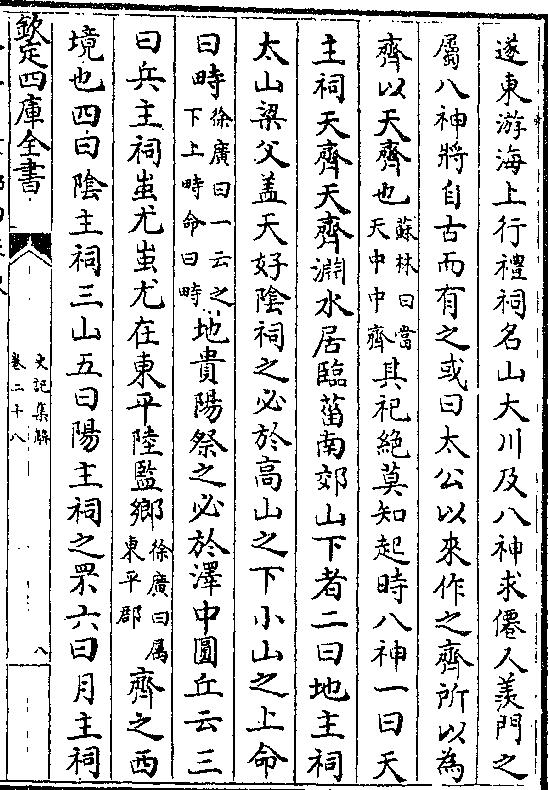 遂東游海上行禮祠名山大川及八神求僊人羨門之
屬八神將自古而有之或曰太公以來作之齊所以為
齊以天齊也蘇林曰當天中中齊其祀絶莫知起時八神一曰天
主祠天齊天齊淵水居臨菑南郊山下者二曰地主祠
太山梁父盖天好陰祠之必於高山之下小山之上命
曰畤徐廣曰一云之下上畤命曰畤地貴陽祭之必於澤中圜丘云三
曰兵主祠蚩尤蚩尤在東平陸監鄉徐廣曰屬東平郡齊之西
境也四曰陰主祠三山五曰陽主祠之罘六曰月主祠
欽定四庫全書
史記集解
卷二十八
八